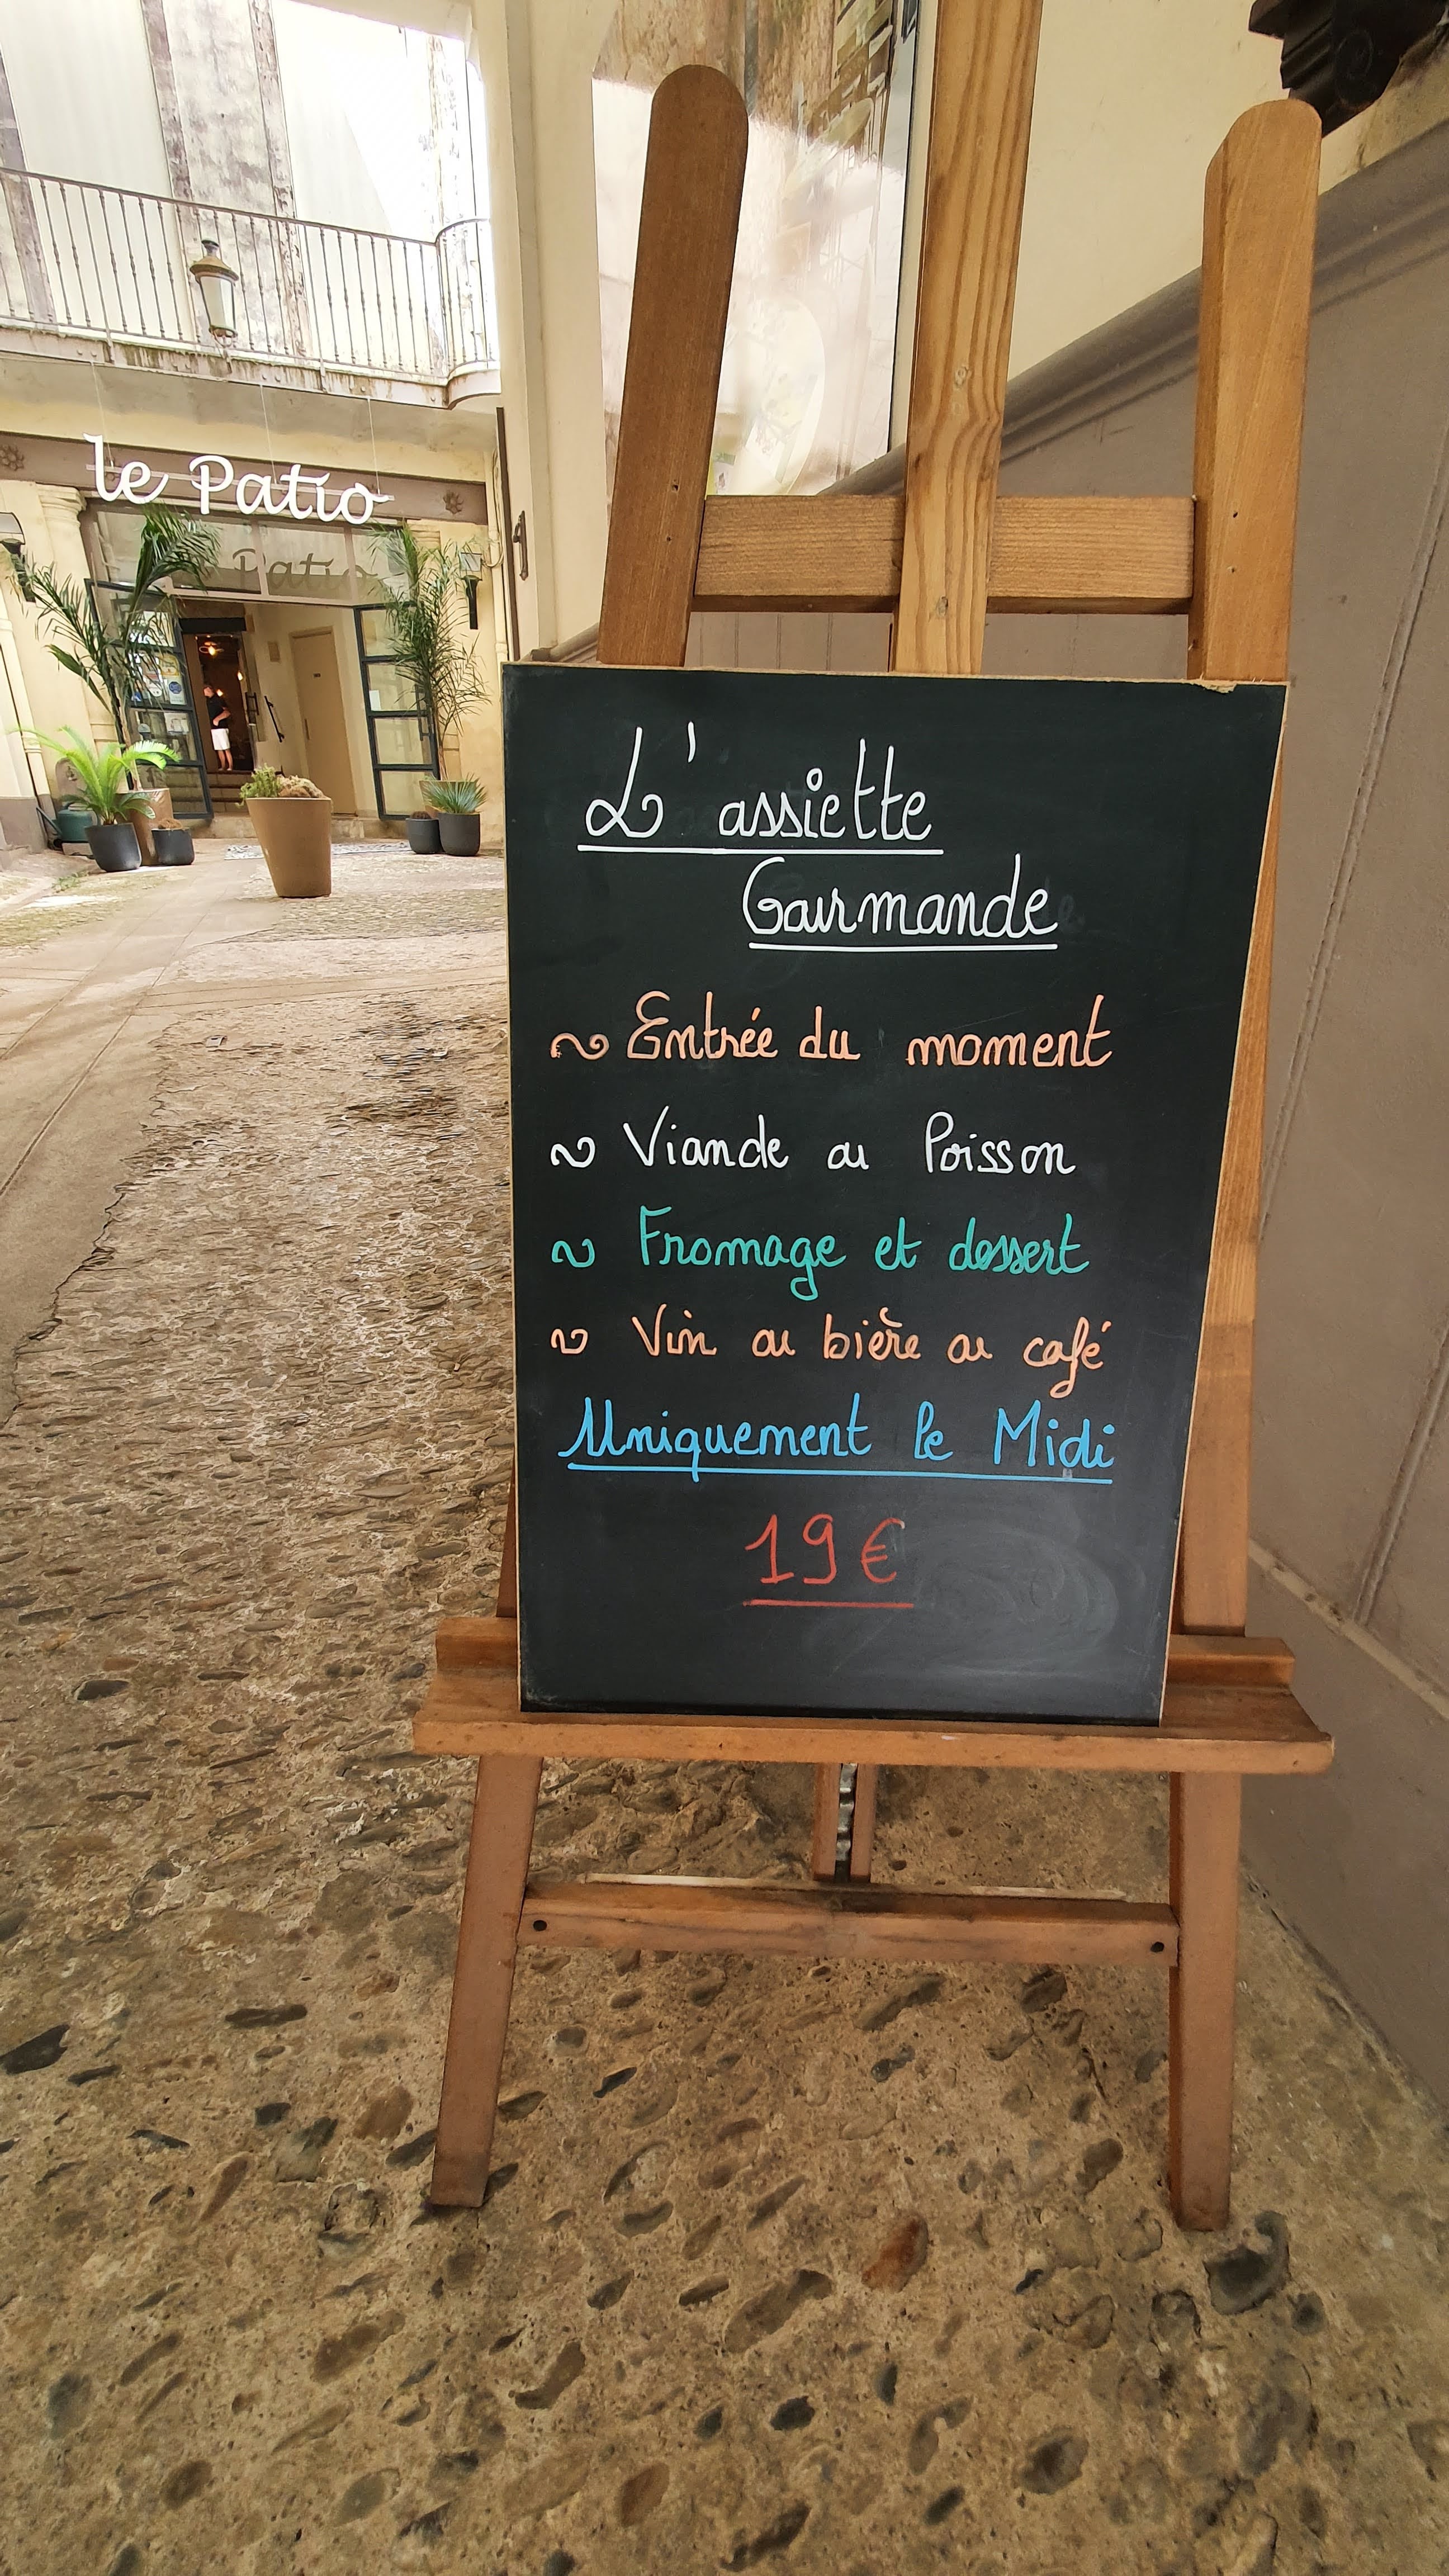 le Patio
Patio
L'assiette
Gourmande
~ Entrée du moment
~ Viande ou Poisson
~ Fromage et dessert
~ Vin ou bière ou café
Uniquement le Midi
19€